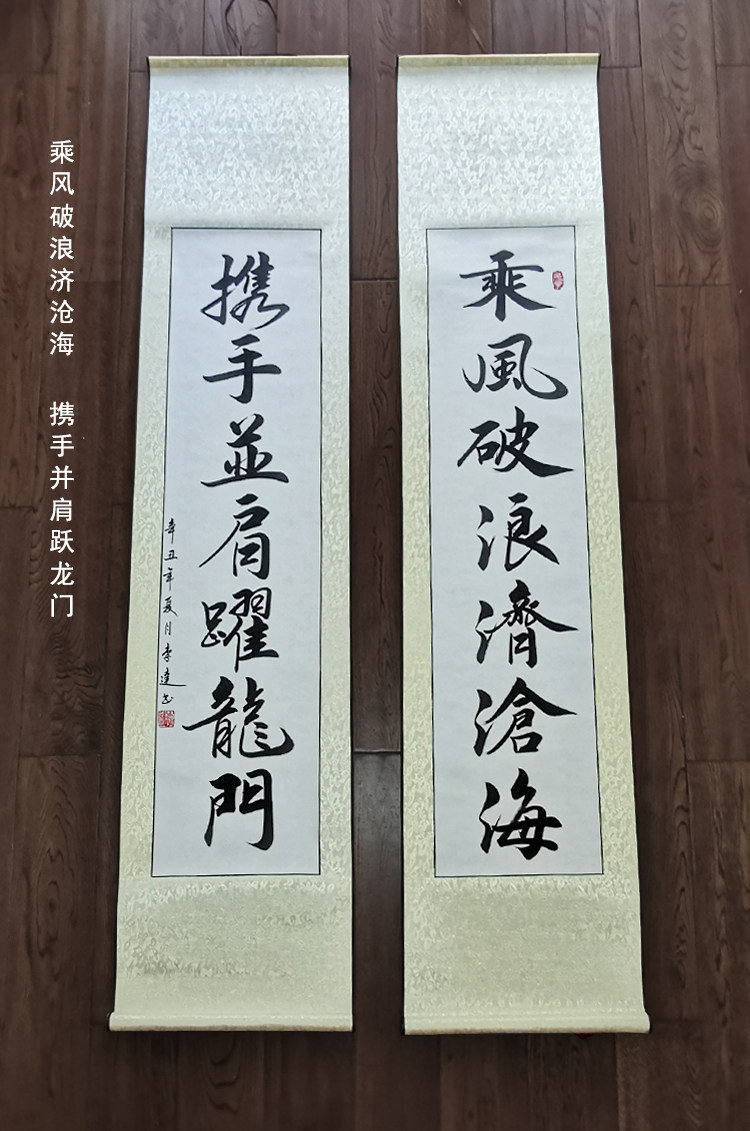 乘風破浪濟滄海
携手並肩躍龍門
辛丑年夏月李達书
乘风破浪济沧海 携手并肩跃龙门